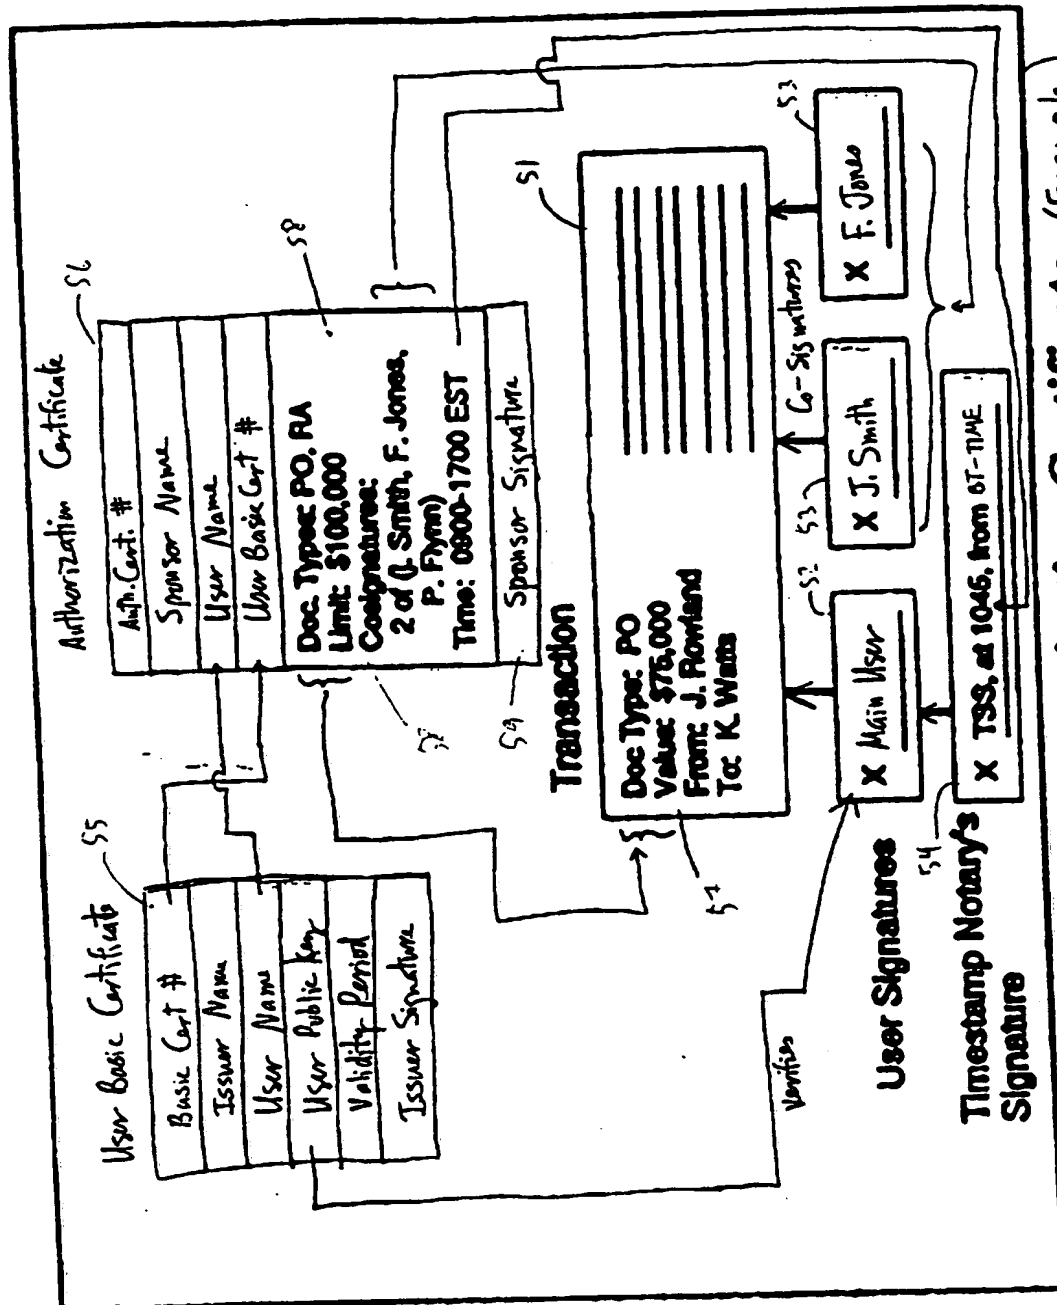 User Basic Certificate
55
Basic Cert #
Issuer Name
User Name
User Public Key
Validity Period
Issuer Signature
Authorization Certificate
56
Auth. Cert. #
Sponsor Name
User Name
User Basic Cert #
Doc. Types: PO, RA
Limit: $100,000
Cosignatures:
2 of (J. Smith, F. Jones,
P. Flynn)
Time: 0900-1700 EST
58
Sponsor Signature
59
Transaction
51
Doc Type: PO
Value: $75,000
From: J. Rowland
To: K. Watts
57
Verifies
User Signatures
52
X Main User
53
X J. Smith
Co-Signatures
53
X F. Jones
Timestamp Notary's
Signature
54
X TSS, at 1045, from BT-TIME